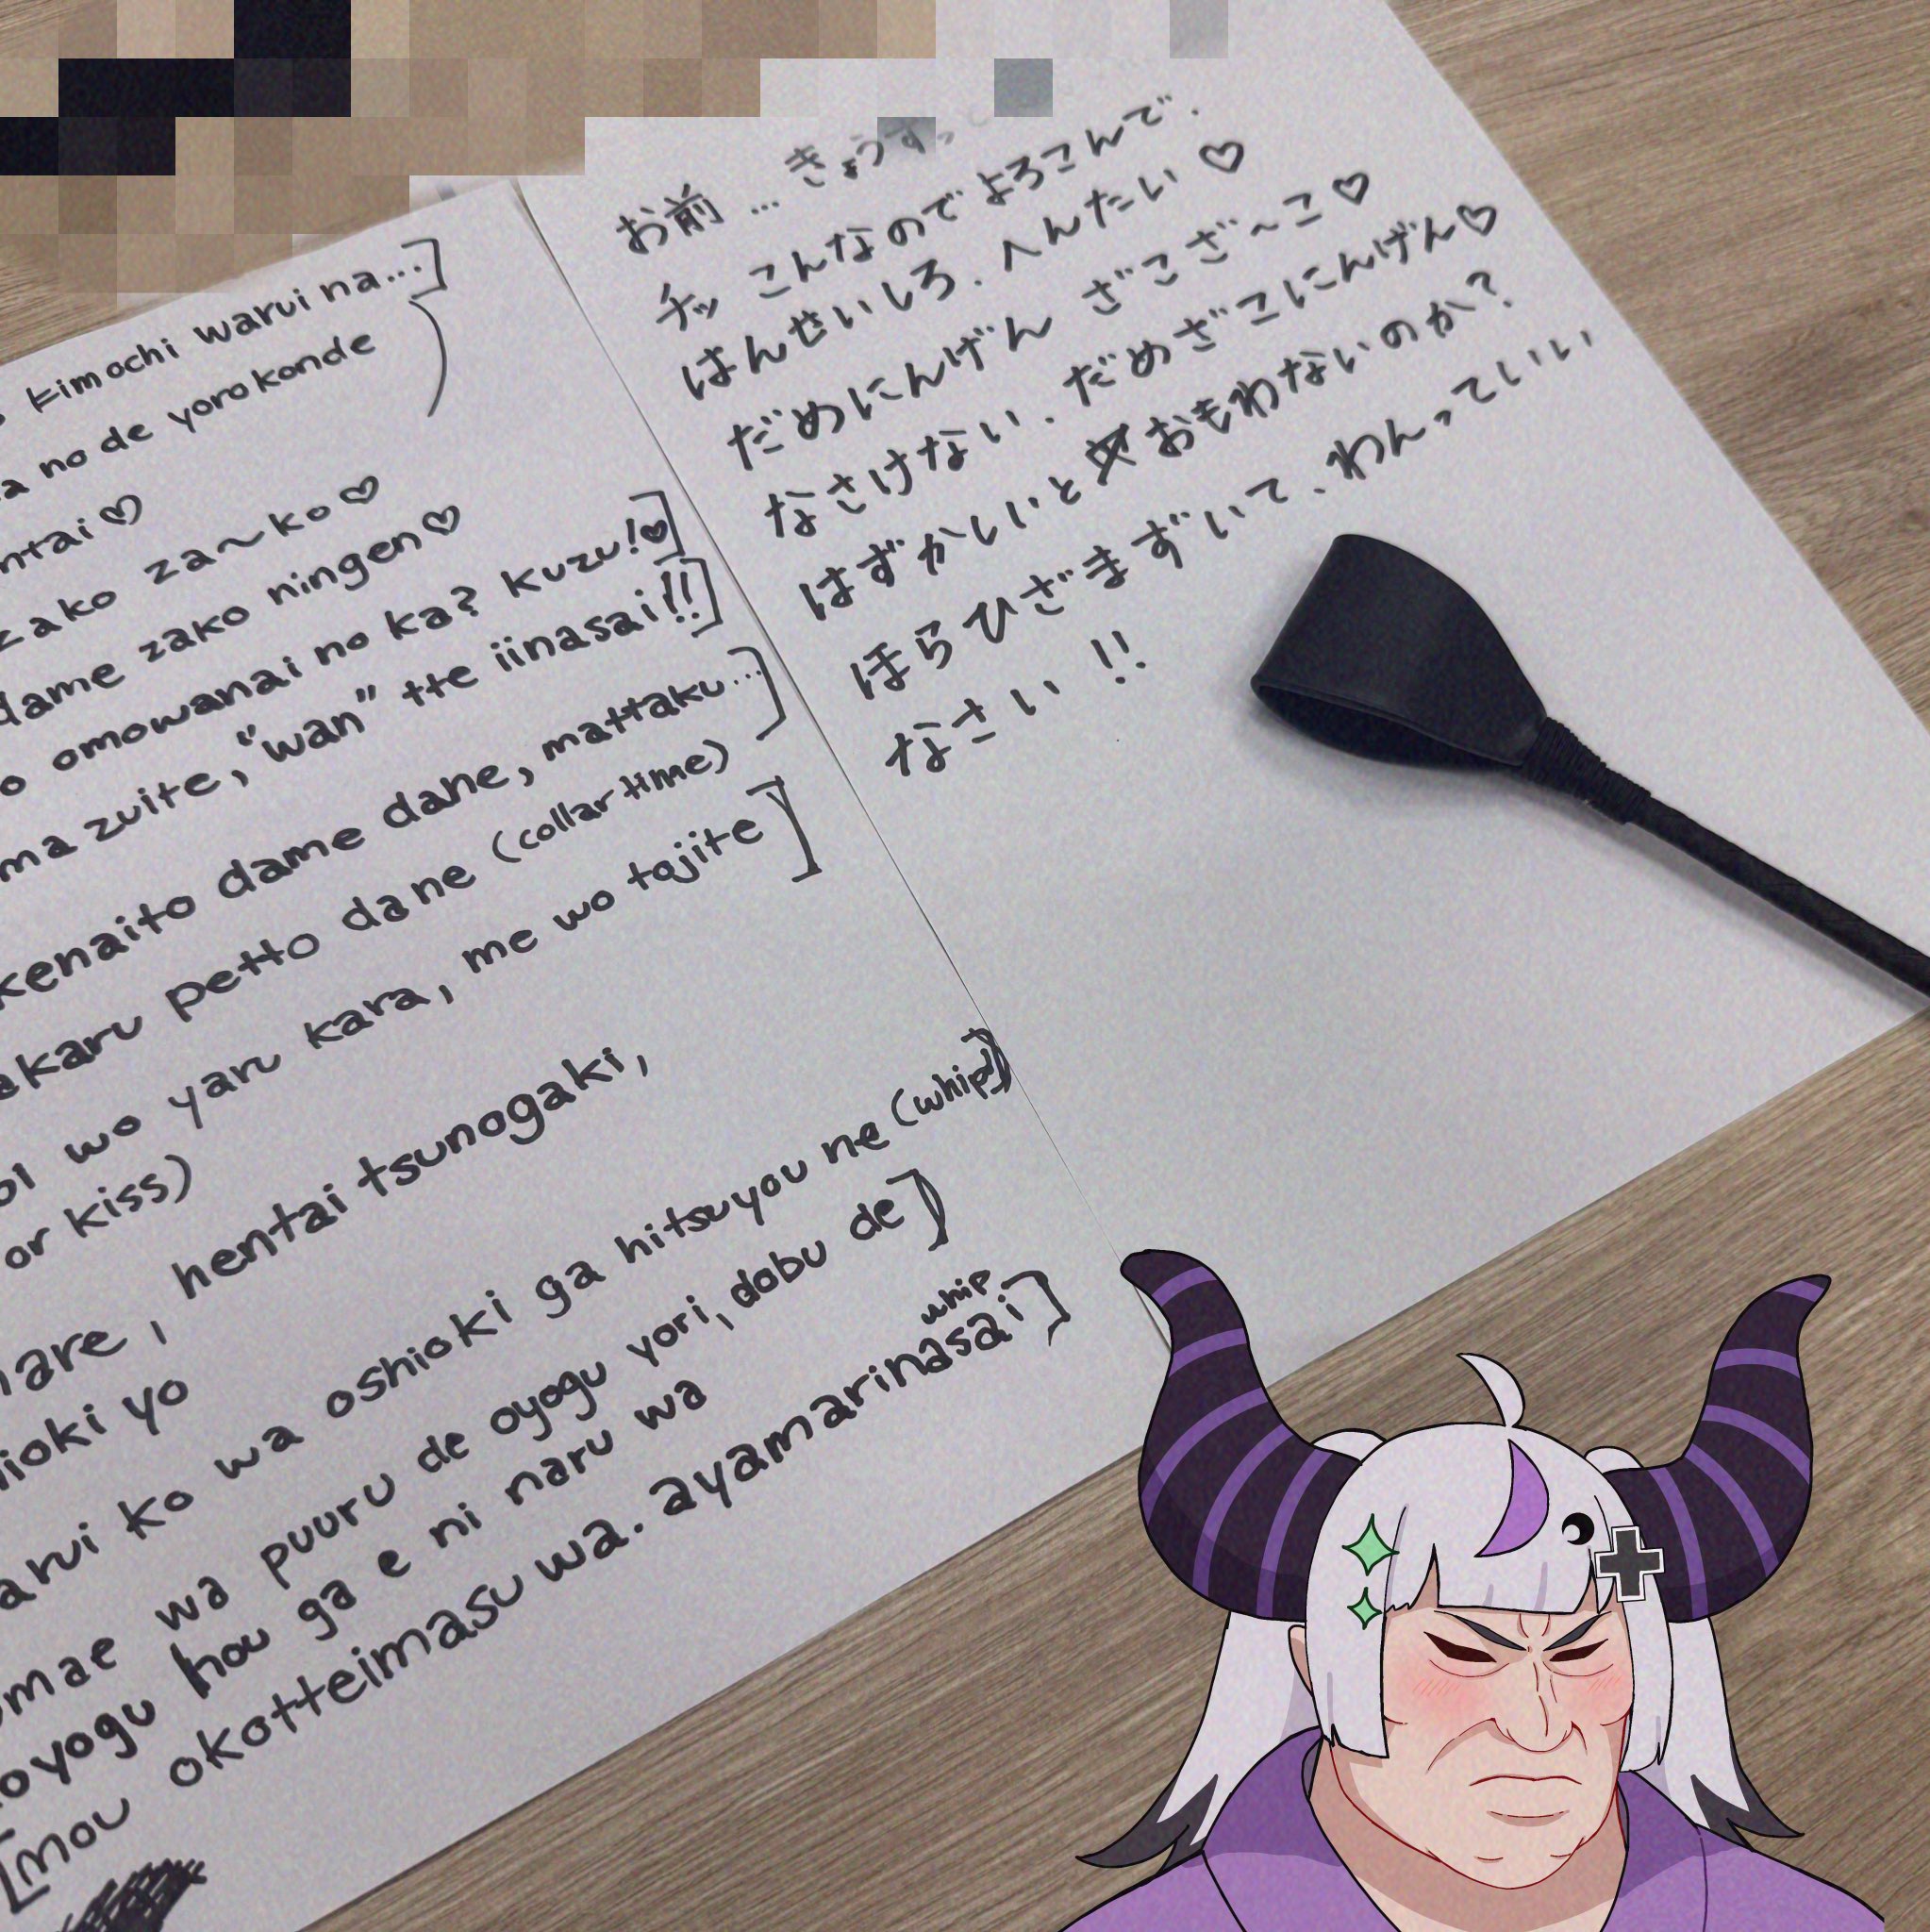 kimochi warui na...]
no de yorokonde
ntai♡
zako za~ko♡
dame zako ningen♡
o omowanai no ka? kuzu!♥]
ma zuite, "wan" tte iinasai!!]
kenaito dame dane, mattaku...]
akaru petto dane (collar time)
wo yaru kara, me wo tojite]
or kiss)
hentai tsunogaki,
ioki yo
arui ko wa oshioki ga hitsuyou ne (whip)]
omae wa puuru de oyogu yori, dobu de]
oyogu hou ga e ni naru wa
whip
[mou okotteimasu wa. ayamarinasai]
お前...きょうすっ
チッ こんなのでよろこんで.
はんせいしろ. へんたい♡
だめにんげん ざこざ~こ♡
なさけない. だめざこにんげん♡
はずかしいとおもわないのか?
ほらひざまずいて、わんっていい
なさい!!